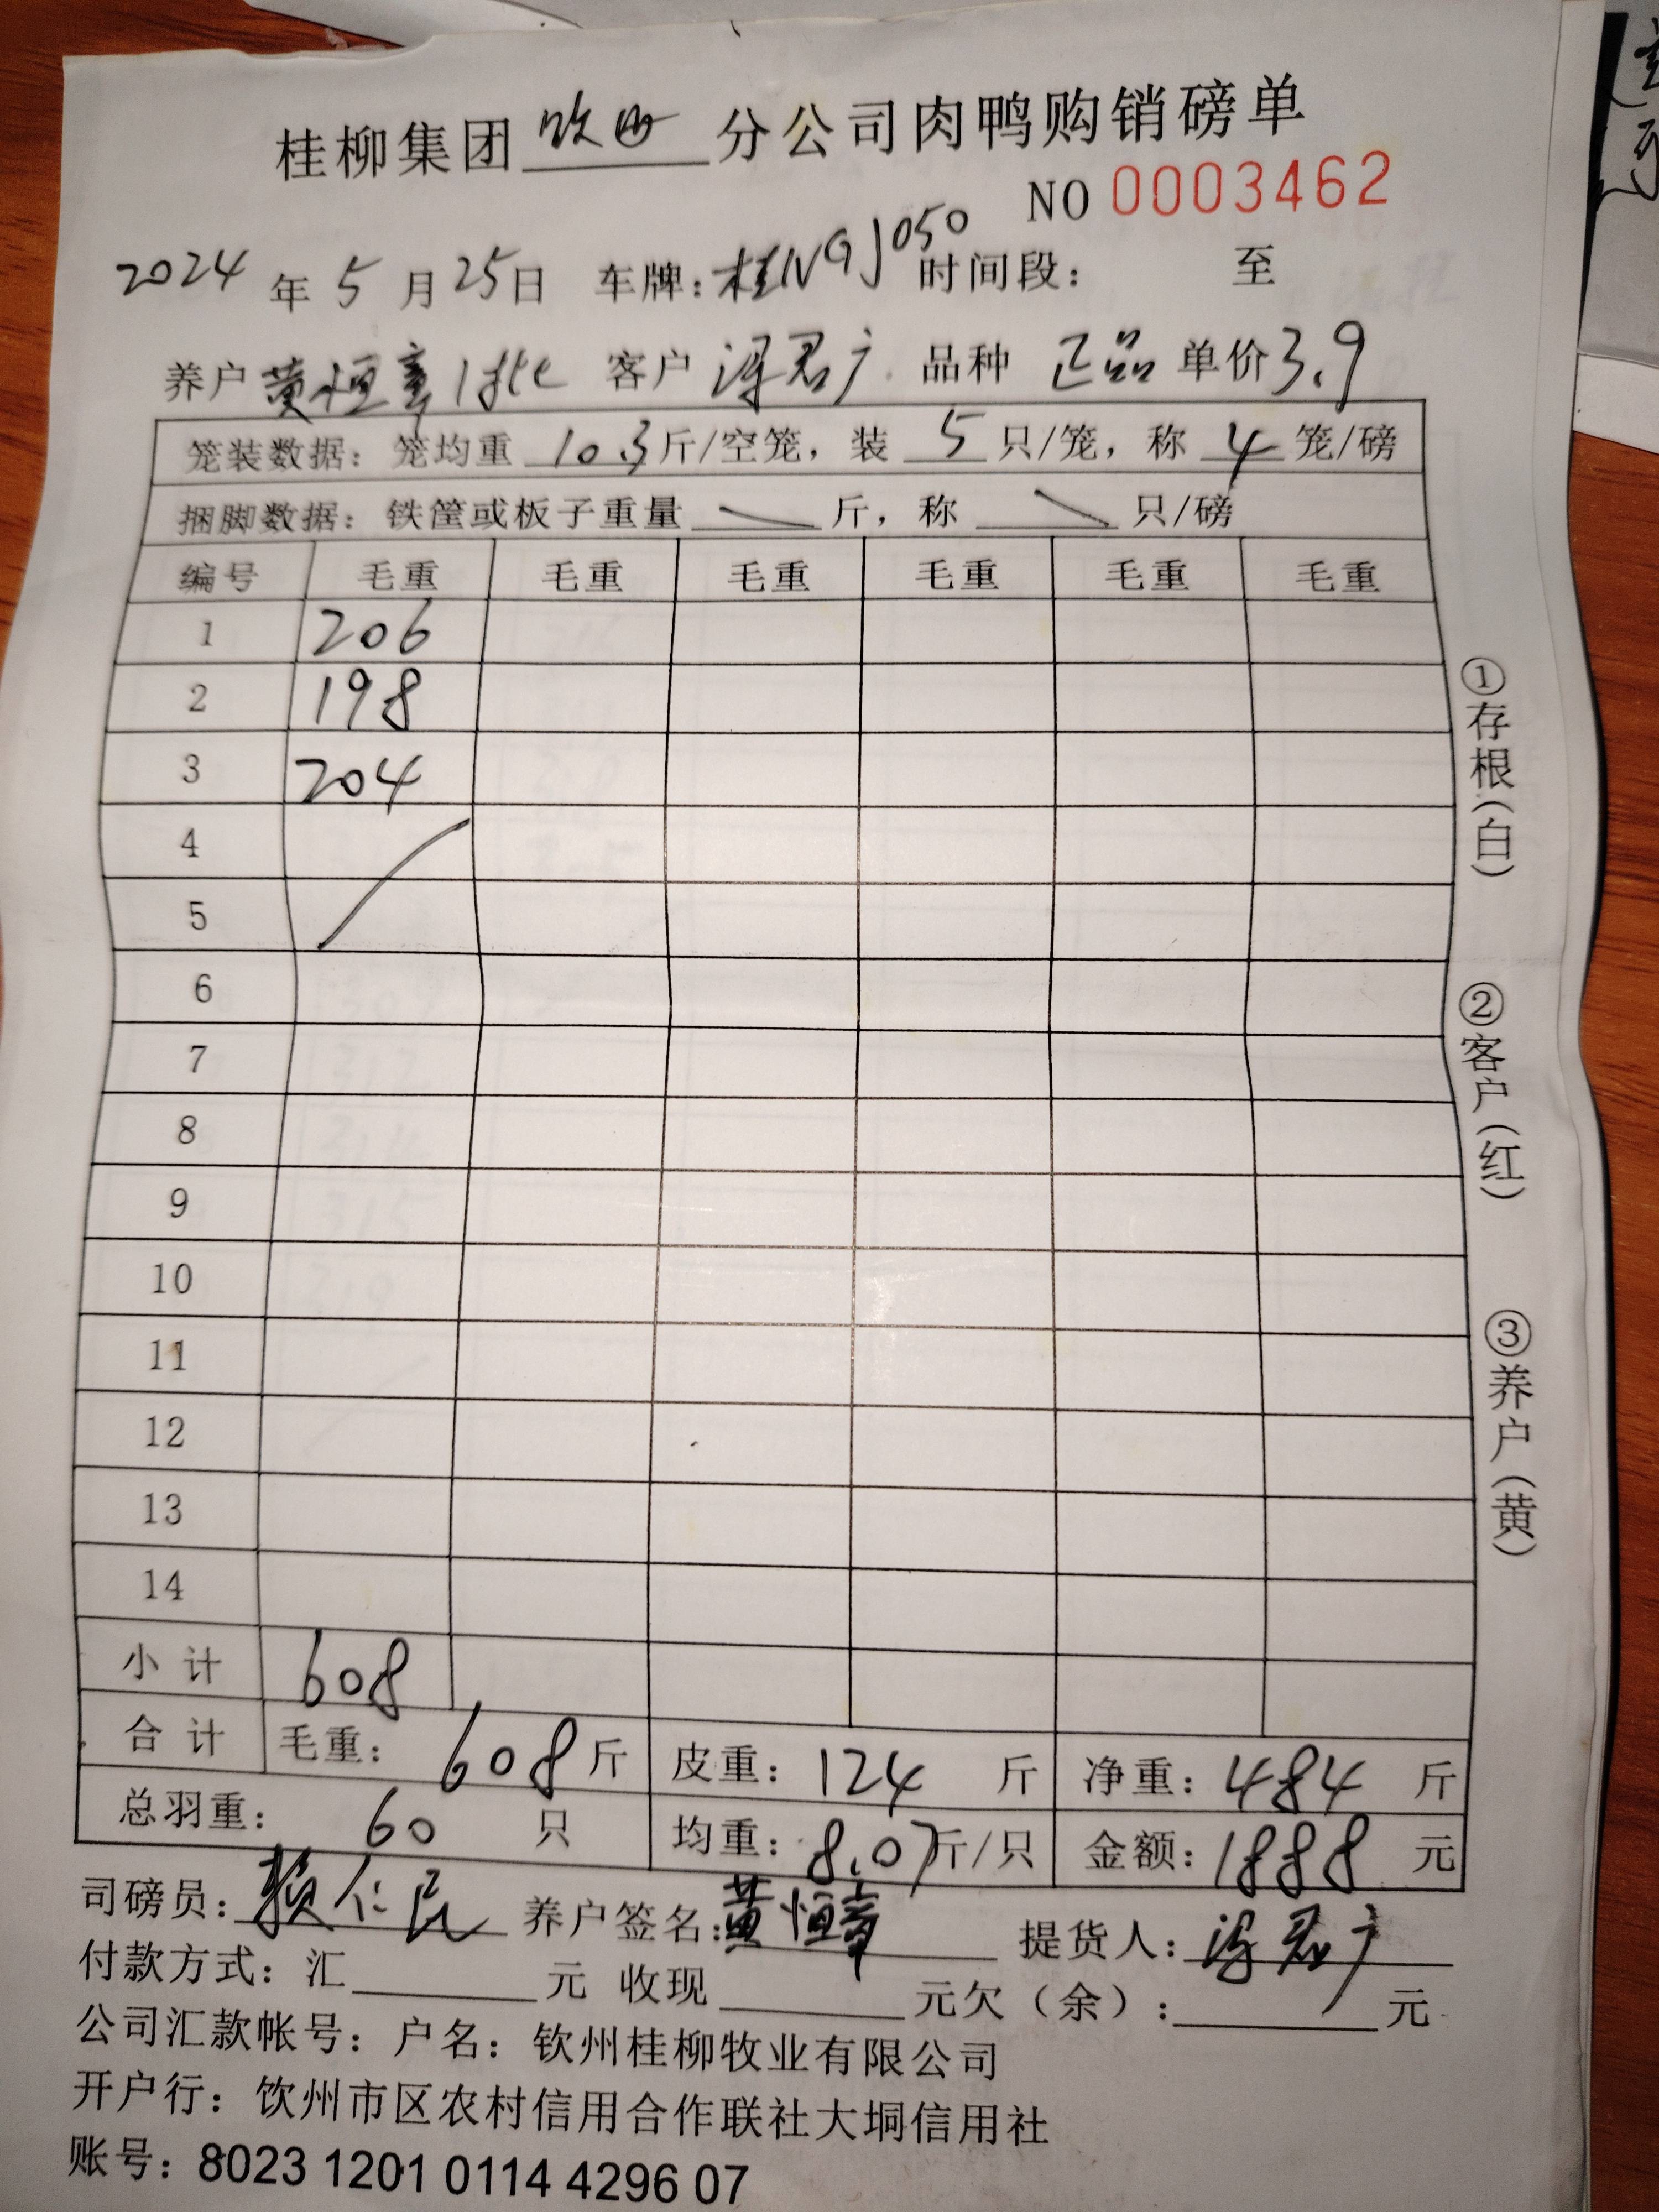 桂柳集团 钦西 分公司肉鸭购销磅单
NO 0003462
2024 年 5 月 25 日 车牌: 桂N9J050 时间段: 至
养户 黄恒章 客户 君广 品种 正品 单价 3.9
笼装数据: 笼均重 10.3 斤/空笼, 装 5 只/笼, 称 4 笼/磅
捆脚数据: 铁筐或板子重量 斤, 称 只/磅
编号 毛重 毛重 毛重 毛重 毛重 毛重
1 206
2 198
3 204
4
5
6
7
8
9
10
11
12
13
14
小计 608
合计 毛重: 608 斤 皮重: 124 斤 净重: 484 斤
总羽重: 60 只 均重: 8.07 斤/只 金额: 1888 元
司磅员: 赖仁民 养户签名: 黄恒章 提货人: 君广
付款方式: 汇 元 收现 元欠（余）: 元
公司汇款帐号: 户名: 钦州桂柳牧业有限公司
开户行: 钦州市区农村信用合作联社大垌信用社
账号: 8023 1201 0114 4296 07
①存根(白)
②客户(红)
③养户(黄)